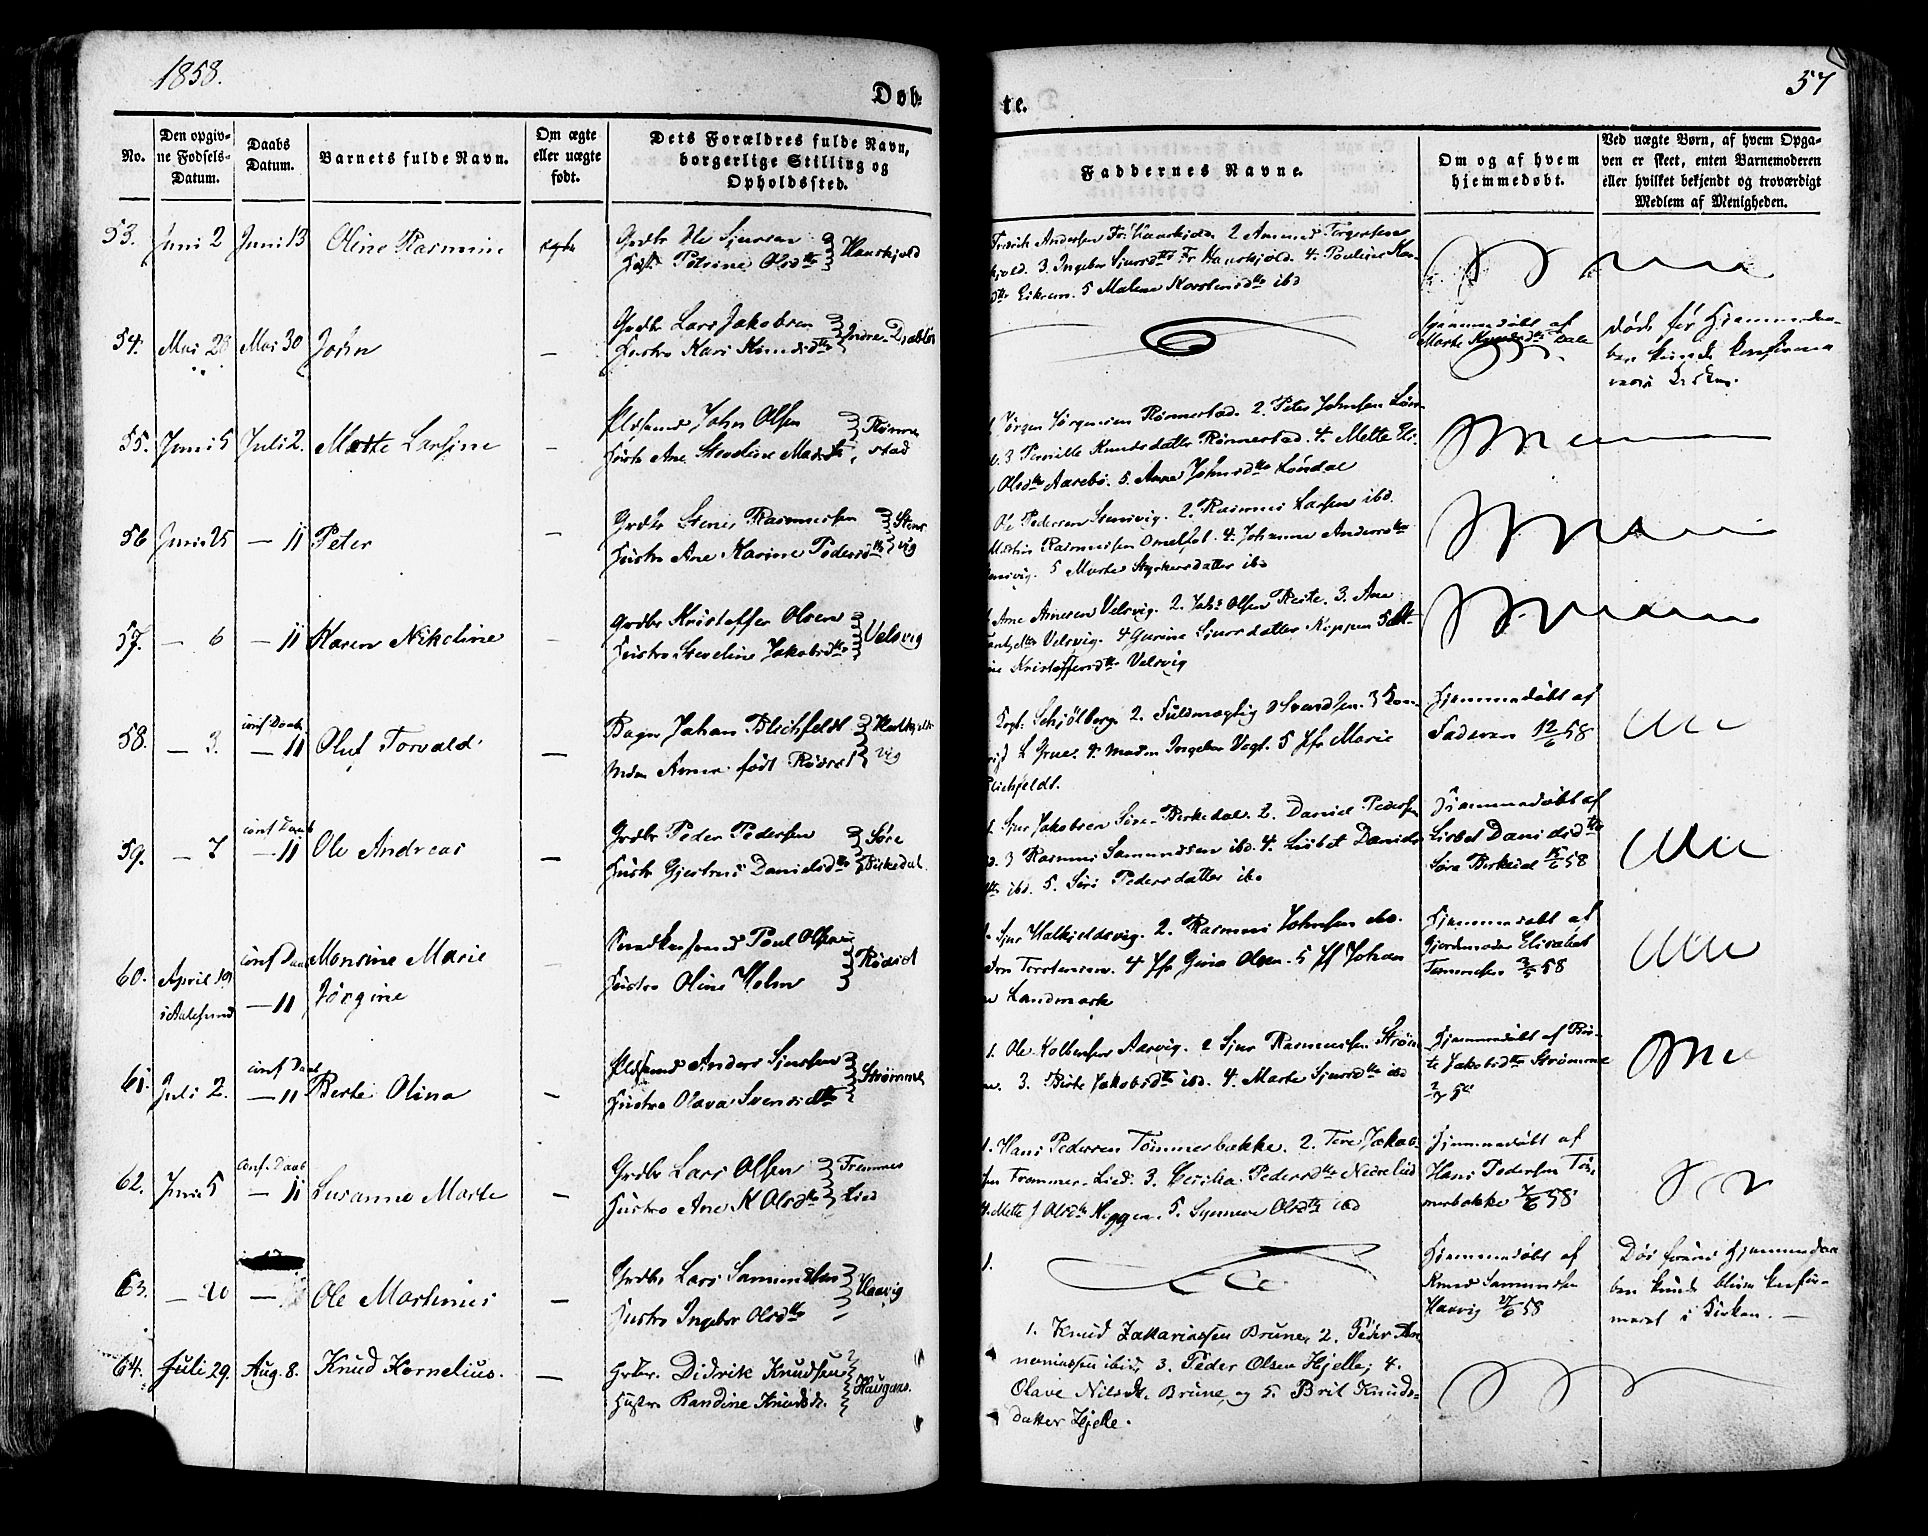 1858.
57
Døb-
te.
No.
Den opgiv-
ne Fødsels-
Datum.
Daabs
Datum.
Barnets fulde Navn.
Om ægte
eller uægte
født.
Dets Forældres fulde Navn,
borgerlige Stilling og
Opholdssted.
Faddernes Navne.
Om og af hvem
hjemmedøbt.
Ved uægte Børn, af hvem Opga-
ven er skeet, enten Barnemoderen
eller hvilket bekjendt og troværdigt
Medlem af Menigheden.
53. Juni 2 Juni 13 Oline Rasmine ægte
Grdbr Ole Sjursen
Hust. Petrine Olsdtr Hanskjold
3. Ingeber Sjursdtr Fr Hanskjold. 4. Pauline
Eikrem. 5 Malene Karstensdtr ibd
54. Mai 28 Mai 30 John —
Grdbr Lars Jakobsen
Hustro Kari Knudsdtr Indre-Drabløs
Hjemmedøbt af
Marte Knudsdtr
døde før Hjemmedaa-
ben kunde konfirme
55. Juni 5 Juli 2. Mette Larsine —
Pldsmd John Olsen
Hustr Ane Stevline Madsdtr
Rønne-
stad
Jørgen Jørgensen Rønnestad. 2. Peter Johnsen
3 Pernille Knudsdatter Rønnestad. 4. Mette El.
Olsdtr Aarebø. 5. Anne Johnsdtr Løndal
56 Juni 25 — 11 Peter —
Grdbr Stener Rasmussen
Hustro Ane Karine Pedersdtr
Stens
vig
Ole Pedersen Stensvig. 2. Rasmus Larsen ibd.
Martin Rasmussen 4. Johanne Andersdtr
5 Marte Styrkersdatter ibd
57. — 6 — 11 Karen Nikoline —
Grdbr Kristoffer Olsen
Hustro Stevline Jakobsdtr Velsvig
Arne Arnesen Velsvig. 2. Johs Olsen Reite. 3. Ane
Velsvig. 4 Gurine Sjursdatter Kippen 5
Kristoffersdtr Velsvig
58. — 3. conf Daab
— 11 Oluf Torvald —
Johan Blichfeldt
Mdm Anna født Rødset
vig
Schjølberg. 2. Fuldmægtig O Svendsen. 3
L Grue. 4. Mdm Ingeber Vogt. 5 Jfr Marie
Blichfeldt.
Hjemmedøbt af
Faderen 12/6 58
59. — 7 conf Daab
— 11 Ole Andreas —
Grdbr Peder Pedersen
Hustr Gjertrud Danielsdtr
Søre
Birkedal.
Sjur Jakobsen Søre-Birkedal. 2. Daniel Pedersen
3 Rasmus Samundsen ibd. 4. Lisbet Daniels
ibd. 5. Siri Pedersdatter ibd
Hjemmedøbt af
Lisbet Danielsdtr
Søre Birkedal 15/6 58
60. April 19
i Aalesund
conf Daab
— 11
Monsine Marie
Jørgine
Poul Olsen
Hustro Oline Holm Rødset
Sjur Halkieldsvig. 2. Rasmus Johnsen
Torstensen. 4 Jfr Gina Olsen. 5 Jf Johan
Landmark
Hjemmedøbt af
Gjordmoder Elisabet
3/5 58
61. Juli 2. conf Daab
— 11 Berte Olina —
Pldsmd Anders Sjursen
Hustro Olava Svensdtr Strømme
1. Ole Kolbensen Aarvig. 2 Sjur Rasmussen Strøm
3. Birte Jakobsdtr ibd. 4. Marte Sjursdtr ibd
Hjemmedøbt af Bir-
te Jakobsdtr Strømme
62. Juni 5 conf. Daab
— 11 Susanne Marte —
Grdbr Lars Olsen
Hustro Ane K Olsdtr
Fremmer
Lied
1. Hans Pedersen Tømmerbakke. 2. Tore Jakob-
sen Fremmer-Lied. 3. Cecilia Pedersdtr Nedrelied
4. Mette J Olsdtr Heggen. 5. Synneve Olsdtr ibd
Hjemmedøbt af
Hans Pedersen Tøm
merbakke 7/6 58
63. — 20 — Ole Martinus —
Grdbr Lars Samundsen
Hustro Ingeber Olsdtr Haavig
1.
Hjemmedøbt af
Knud Samundsen
Haavig 27/6 58
Døde førend Hjemmedaa
ben kunde blive konfir-
meret i Kirken. —
64. Juli 29. Aug. 8. Knud Kornelius. —
Grbr. Didrik Knudsen
Hustr. Randine Knudsdt. Haugene.
1. Knud Zakariassen Brune, 2. Peder An
neniassen ibid; 3. Peder Olsen Hjelle; 4.
Olave Nilsdt. Brune, og 5. Brit Knuds-
datter Hjelle.